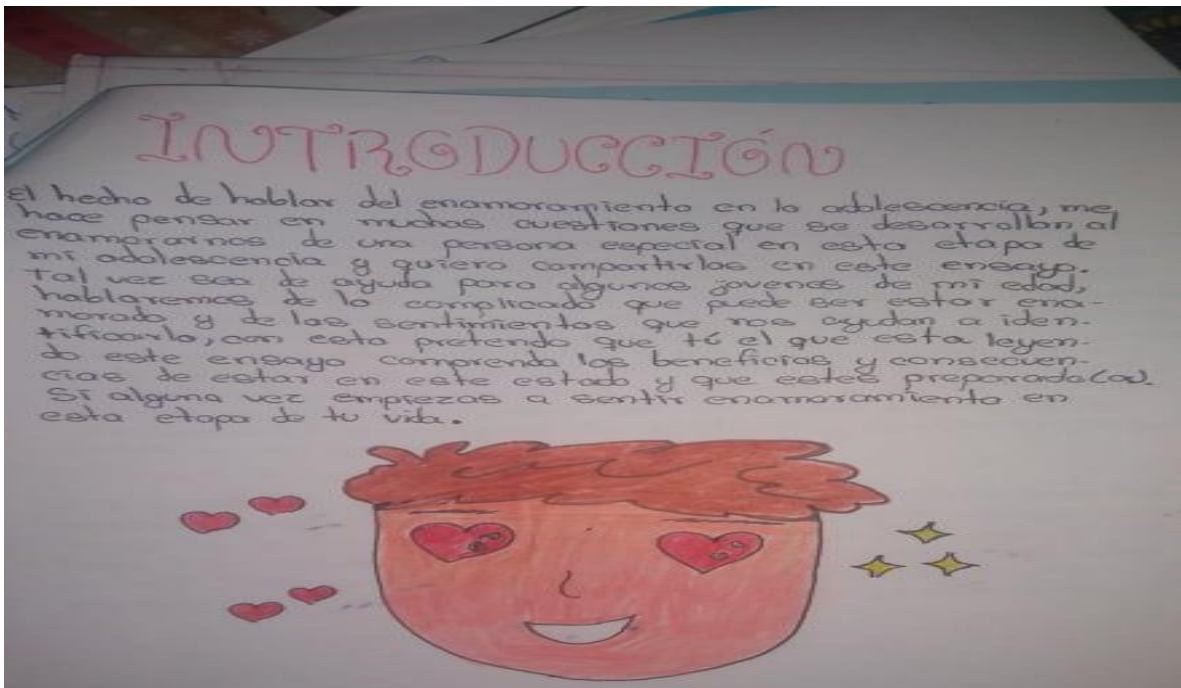 INTRODUCCIÓN
El hecho de hablar del enamoramiento en la adolescencia, me
hace pensar en muchas cuestiones que se desarrollan al
enamorarnos de una persona especial en esta etapa de
mi adolescencia y quiero compartirlas en este ensayo.
Tal vez sea de ayuda para algunos jovenes de mi edad,
hablaremos de lo complicado que puede ser estar ena-
morado y de los sentimientos que nos ayudan a iden-
tificarlo, con esto pretendo que tú el que esta leyen-
do este ensayo comprenda los beneficios y consecuen-
cias de estar en este estado y que estes preparado(a).
Si alguna vez empiezas a sentir enamoramiento en
esta etapa de tu vida.